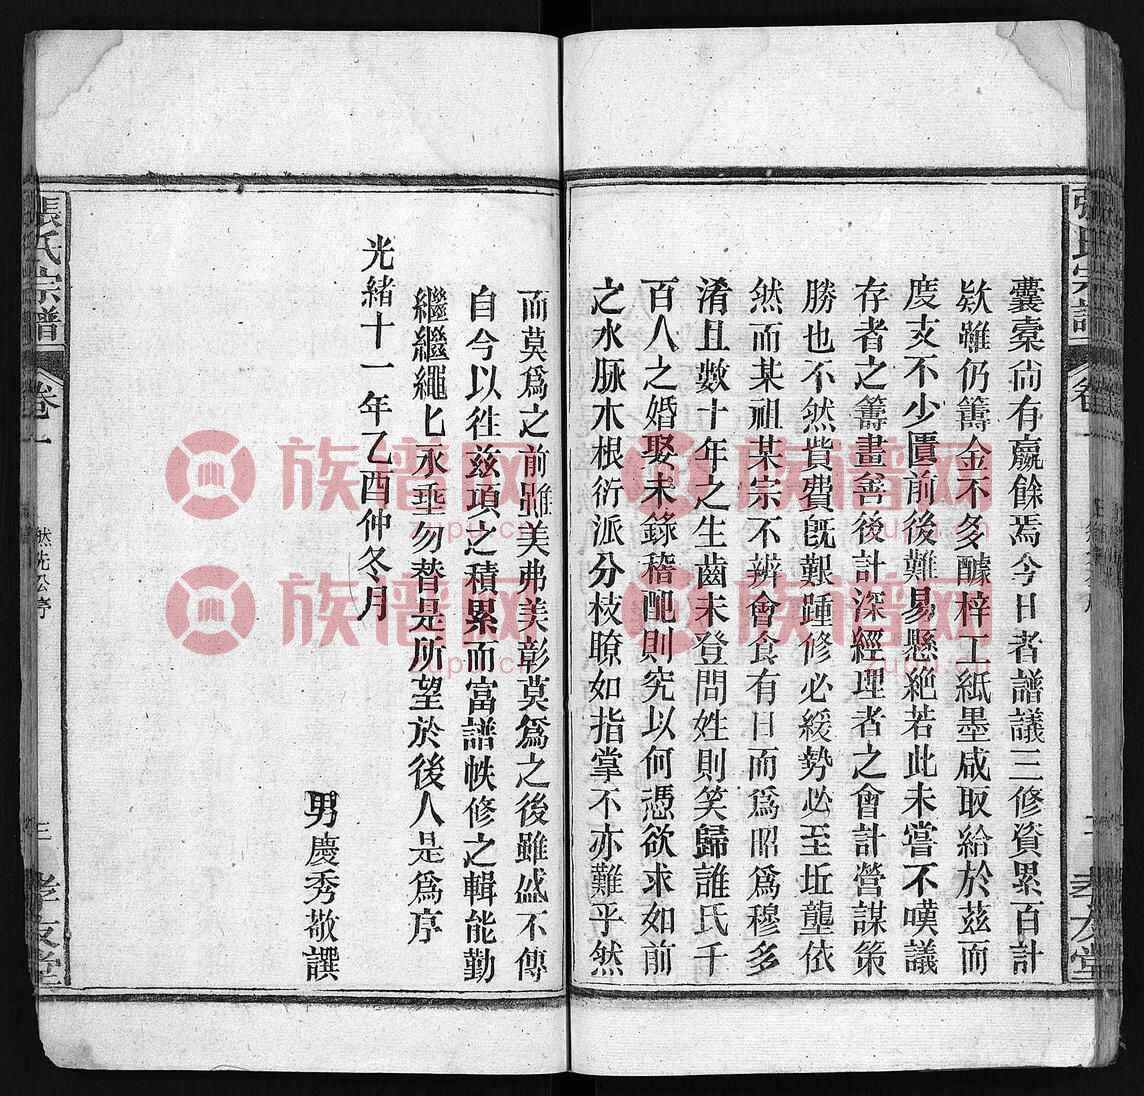 囊橐尙有嬴餘焉今日者譜議三修資累百計
欵雖仍籌金不多醵梓工紙墨咸取給於茲而
度支不少匱前後難易懸絶若此未嘗不嘆議
存者之籌畫善後計深經理者之會計營謀策
勝也不然貲費旣艱踵修必緩勢必至坵壟依
然而某祖某宗不辨會食有日而爲昭爲穆多
淆且數十年之生齒未登問姓則笑歸誰氏千
百人之婚娶未錄稽配則究以何憑欲求如前
之水脉木根衍派分枝瞭如指掌不亦難乎然
而莫爲之前雖美弗美彰莫爲之後雖盛不傳
自今以徃茲項之積累而富譜帙修之輯能勤
繼繼繩匕永垂勿替是所望於後人是爲序
光緒十一年乙酉仲冬月
男慶秀敬譔
張氏宗譜
卷一
然先公序
三
孝友堂
族谱网
zupu.cn
族谱网
zupu.cn
族谱网
zupu.cn
族谱网
zupu.cn